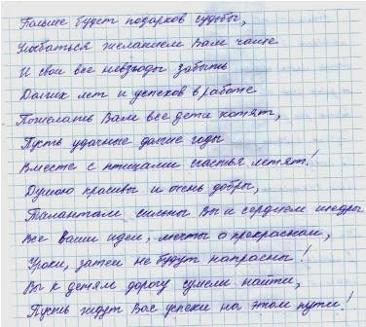 Больше будет подарков судьбы,
Улыбаться желанием Вам чаще
И свои все невзгоды забыть
Долгих лет и успехов в работе
Пожелать Вам все дети хотят,
Пусть удачные долгие годы
Вместе с птицами счастья летят!
Душою красивы и очень добры,
Талантам сильны Вы и сердцем щедры
Все Ваши идеи, мечты о прекрасном,
Уроки, затеи не будут напрасны!
Вы к детям дорогу сумели найти,
Пусть ждут Вас успехи на этом пути!